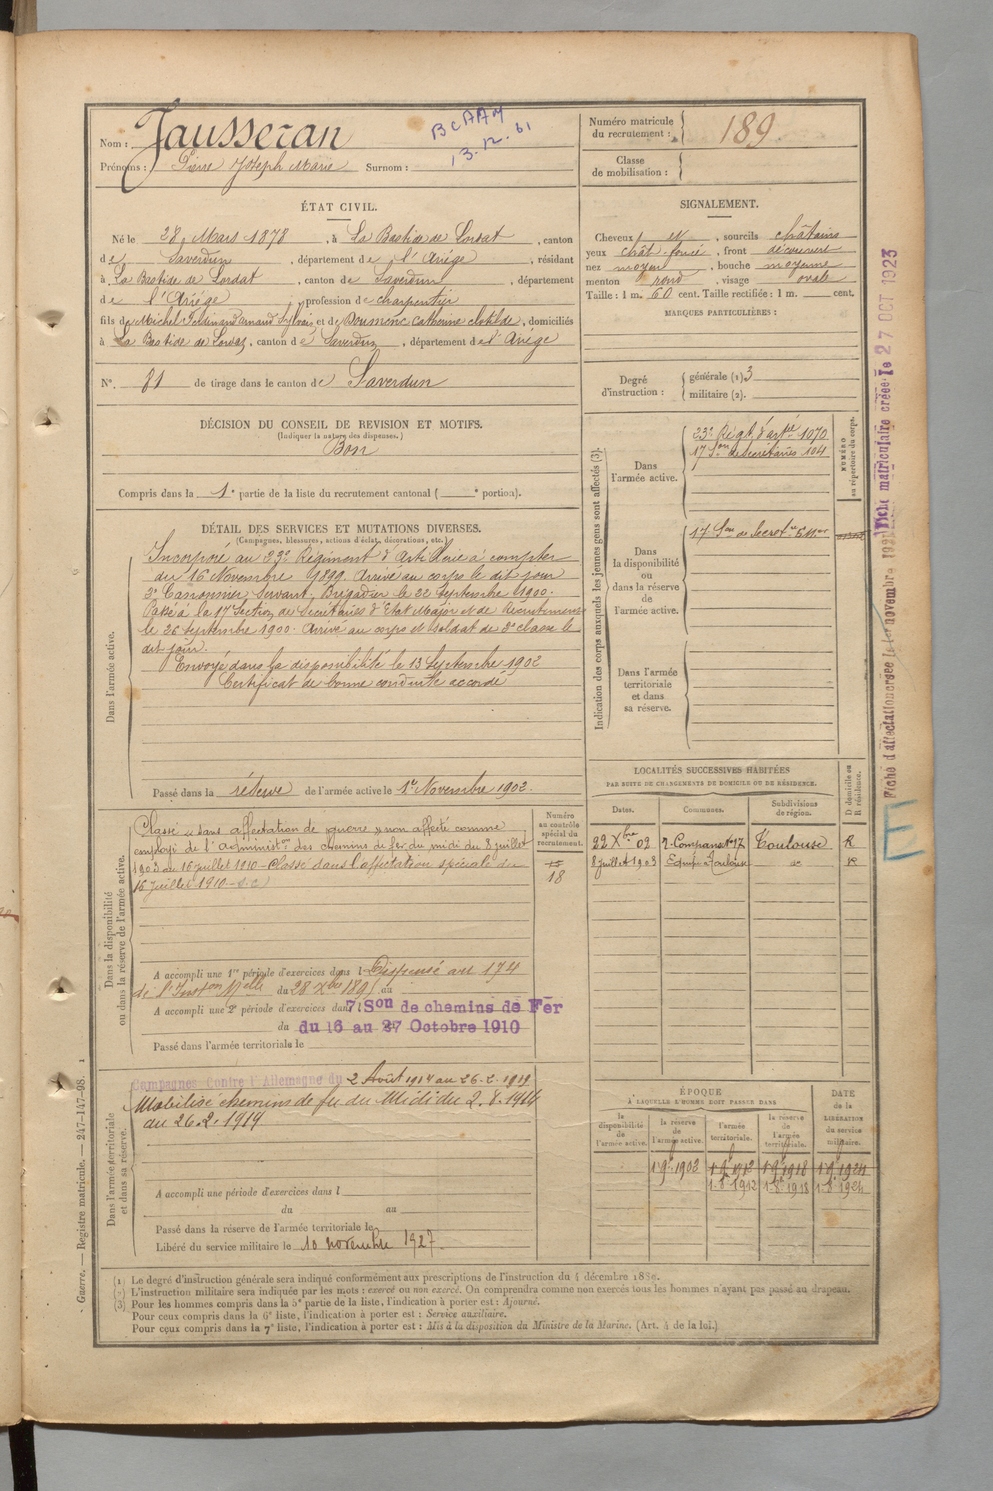 Nom : Jausseran
BCAAM
13.12.61
Prénoms : Pierre Joseph Marie Surnom :
Numéro matricule du recrutement : 189.
Classe de mobilisation :
ÉTAT CIVIL.
Né le 28 Mars 1878, à La Bastide de Lordat, canton
de Saverdun, département de l'Ariége, résidant
à La Bastide de Lordat, canton de Saverdun, département
de l'Ariége, profession de charpentier
fils de Michel Ferdinand et de Doumenc Catherine Clotilde, domiciliés
à La Bastide de Lordat, canton de Saverdun, département de l'Ariége
N°. 81 de tirage dans le canton de Saverdun
SIGNALEMENT.
Cheveux et, sourcils châtains
yeux chât foncé, front découvert
nez moyen, bouche moyenne
menton rond, visage ovale
Taille : 1 m. 60 cent. Taille rectifiée : 1 m. cent.
MARQUES PARTICULIÈRES :
Degré d'instruction : générale (1) 3
militaire (2).
DÉCISION DU CONSEIL DE REVISION ET MOTIFS.
(Indiquer la nature des dispenses.)
Bon
Compris dans la 1e partie de la liste du recrutement cantonal ( e portion).
DÉTAIL DES SERVICES ET MUTATIONS DIVERSES.
(Campagnes, blessures, actions d'éclat, décorations, etc.)
Dans l'armée active.
Incorporé au 23e Régiment d'Artillerie à compter
du 16 Novembre 1899. Arrivé au corps le dit jour
2e Canonnier Servant, Brigadier le 22 Septembre 1900.
Passé à la 17e Section de Secrétaires d'Etat Major et de Recrutement
le 26 Septembre 1900. Arrivé au corps et soldat de 2e classe le
dit jour.
Envoyé dans la disponibilité le 13 Septembre 1902
Certificat de bonne conduite accordé
Passé dans la réserve de l'armée active le 1er Novembre 1902.
Indication des corps auxquels les jeunes gens sont affectés (3).
NUMÉRO au répertoire du corps.
Dans l'armée active.
23e Régt d'artie 1070
17 Son de Secrétaires 104
Dans la disponibilité ou dans la réserve de l'armée active.
17 Son de Secret
Dans l'armée territoriale et dans sa réserve.
Fiche d'affectation 1er novembre
Fiche matriculaire créée le 27 OCT 1923
E
LOCALITÉS SUCCESSIVES HABITÉES
PAR SUITE DE CHANGEMENTS DE DOMICILE OU DE RÉSIDENCE.
Dates. Communes. Subdivisions de région. D domicile ou R résidence.
22 Xbre 02 Toulouse R
8 juillet 1903 R
Dans la disponibilité ou dans la réserve de l'armée active.
Numéro au contrôle spécial du recrutement.
Classé "dans affectation de guerre" non affecté comme
employé de l'administon des chemins de fer du midi du 8 juillet
1903 au 16 juillet 1910 - Classé dans l'affectation spéciale du
16 juillet 1910
18
A accompli une 1re période d'exercices dans l Dispensé au 174
de l'Inston Melle du 28 Xbre 189 au
A accompli une 2e période d'exercices dans l 7e Son de chemins de Fer
du 16 au 27 Octobre 1910
Passé dans l'armée territoriale le
Dans l'armée territoriale et dans sa réserve.
Campagnes Contre l'Allemagne du 2 Août 1914 au 26.2.1919
Mobilisé chemins de fer du Midi du 2.8.1914
au 26.2.1919
A accompli une période d'exercices dans l
du au
Passé dans la réserve de l'armée territoriale le
Libéré du service militaire le 10 novembre 1927.
ÉPOQUE
À LAQUELLE L'HOMME DOIT PASSER DANS
DATE de la LIBÉRATION du service militaire.
la disponibilité de l'armée active. la réserve de l'armée active. l'armée territoriale. la réserve de l'armée territoriale.
1 9bre 1902 1 9bre 1912 1 9bre 1918 1 9bre 1924
1.8bre 1912 1.8bre 1918 1.8bre 1924
(1) Le degré d'instruction générale sera indiqué conformément aux prescriptions de l'instruction du 4 décembre 1889.
(2) L'instruction militaire sera indiquée par les mots : exercé ou non exercé. On comprendra comme non exercés tous les hommes n'ayant pas passé au drapeau.
(3) Pour les hommes compris dans la 5e partie de la liste, l'indication à porter est : Ajourné.
Pour ceux compris dans la 6e liste, l'indication à porter est : Service auxiliaire.
Pour ceux compris dans la 7e liste, l'indication à porter est : Mis à la disposition du Ministre de la Marine. (Art. 4 de la loi.)
Guerre. — Registre matricule. — 247-147-98. 1